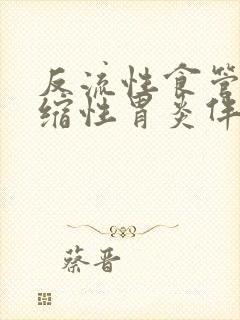 反流性食管
缩性胃炎伴
蔡晋